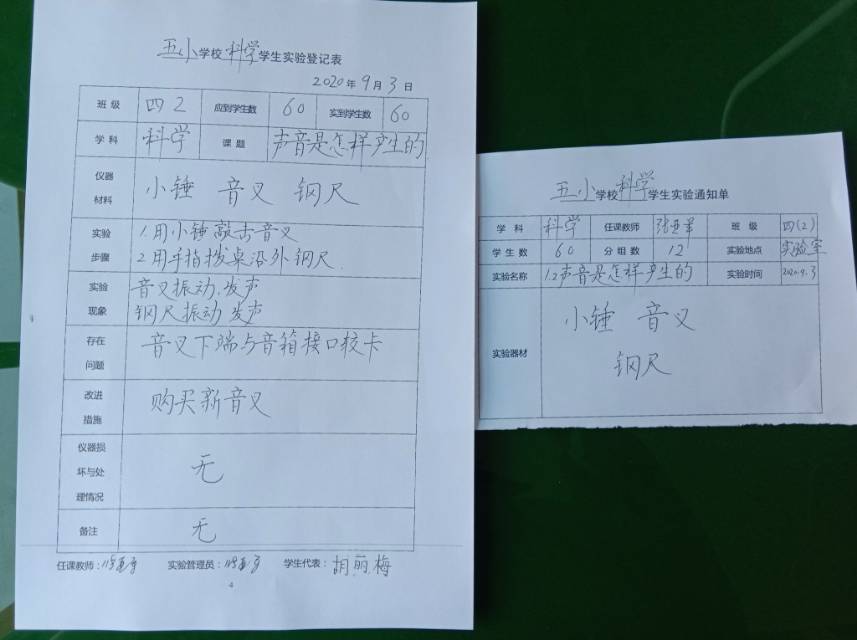 五小学校科学学生实验登记表
2020年9月3日
班级 四2 应到学生数 60 实到学生数 60
学科 科学 课题 声音是怎样产生的
仪器材料 小锤 音叉 钢尺
实验步骤 1.用小锤敲击音叉
2.用手指拨桌沿外钢尺
实验现象 音叉振动,发声
钢尺振动 发声
存在问题 音叉下端与音箱接口较卡
改进措施 购买新音叉
仪器损坏与处理情况 无
备注 无
任课教师: 实验管理员: 学生代表:胡丽梅
4
五小学校科学学生实验通知单
学科 科学 任课教师 班级 四(2)
学生数 60 分组数 12 实验地点 实验室
实验名称 1.2声音是怎样产生的 实验时间 2020.9.3
实验器材 小锤 音叉
钢尺